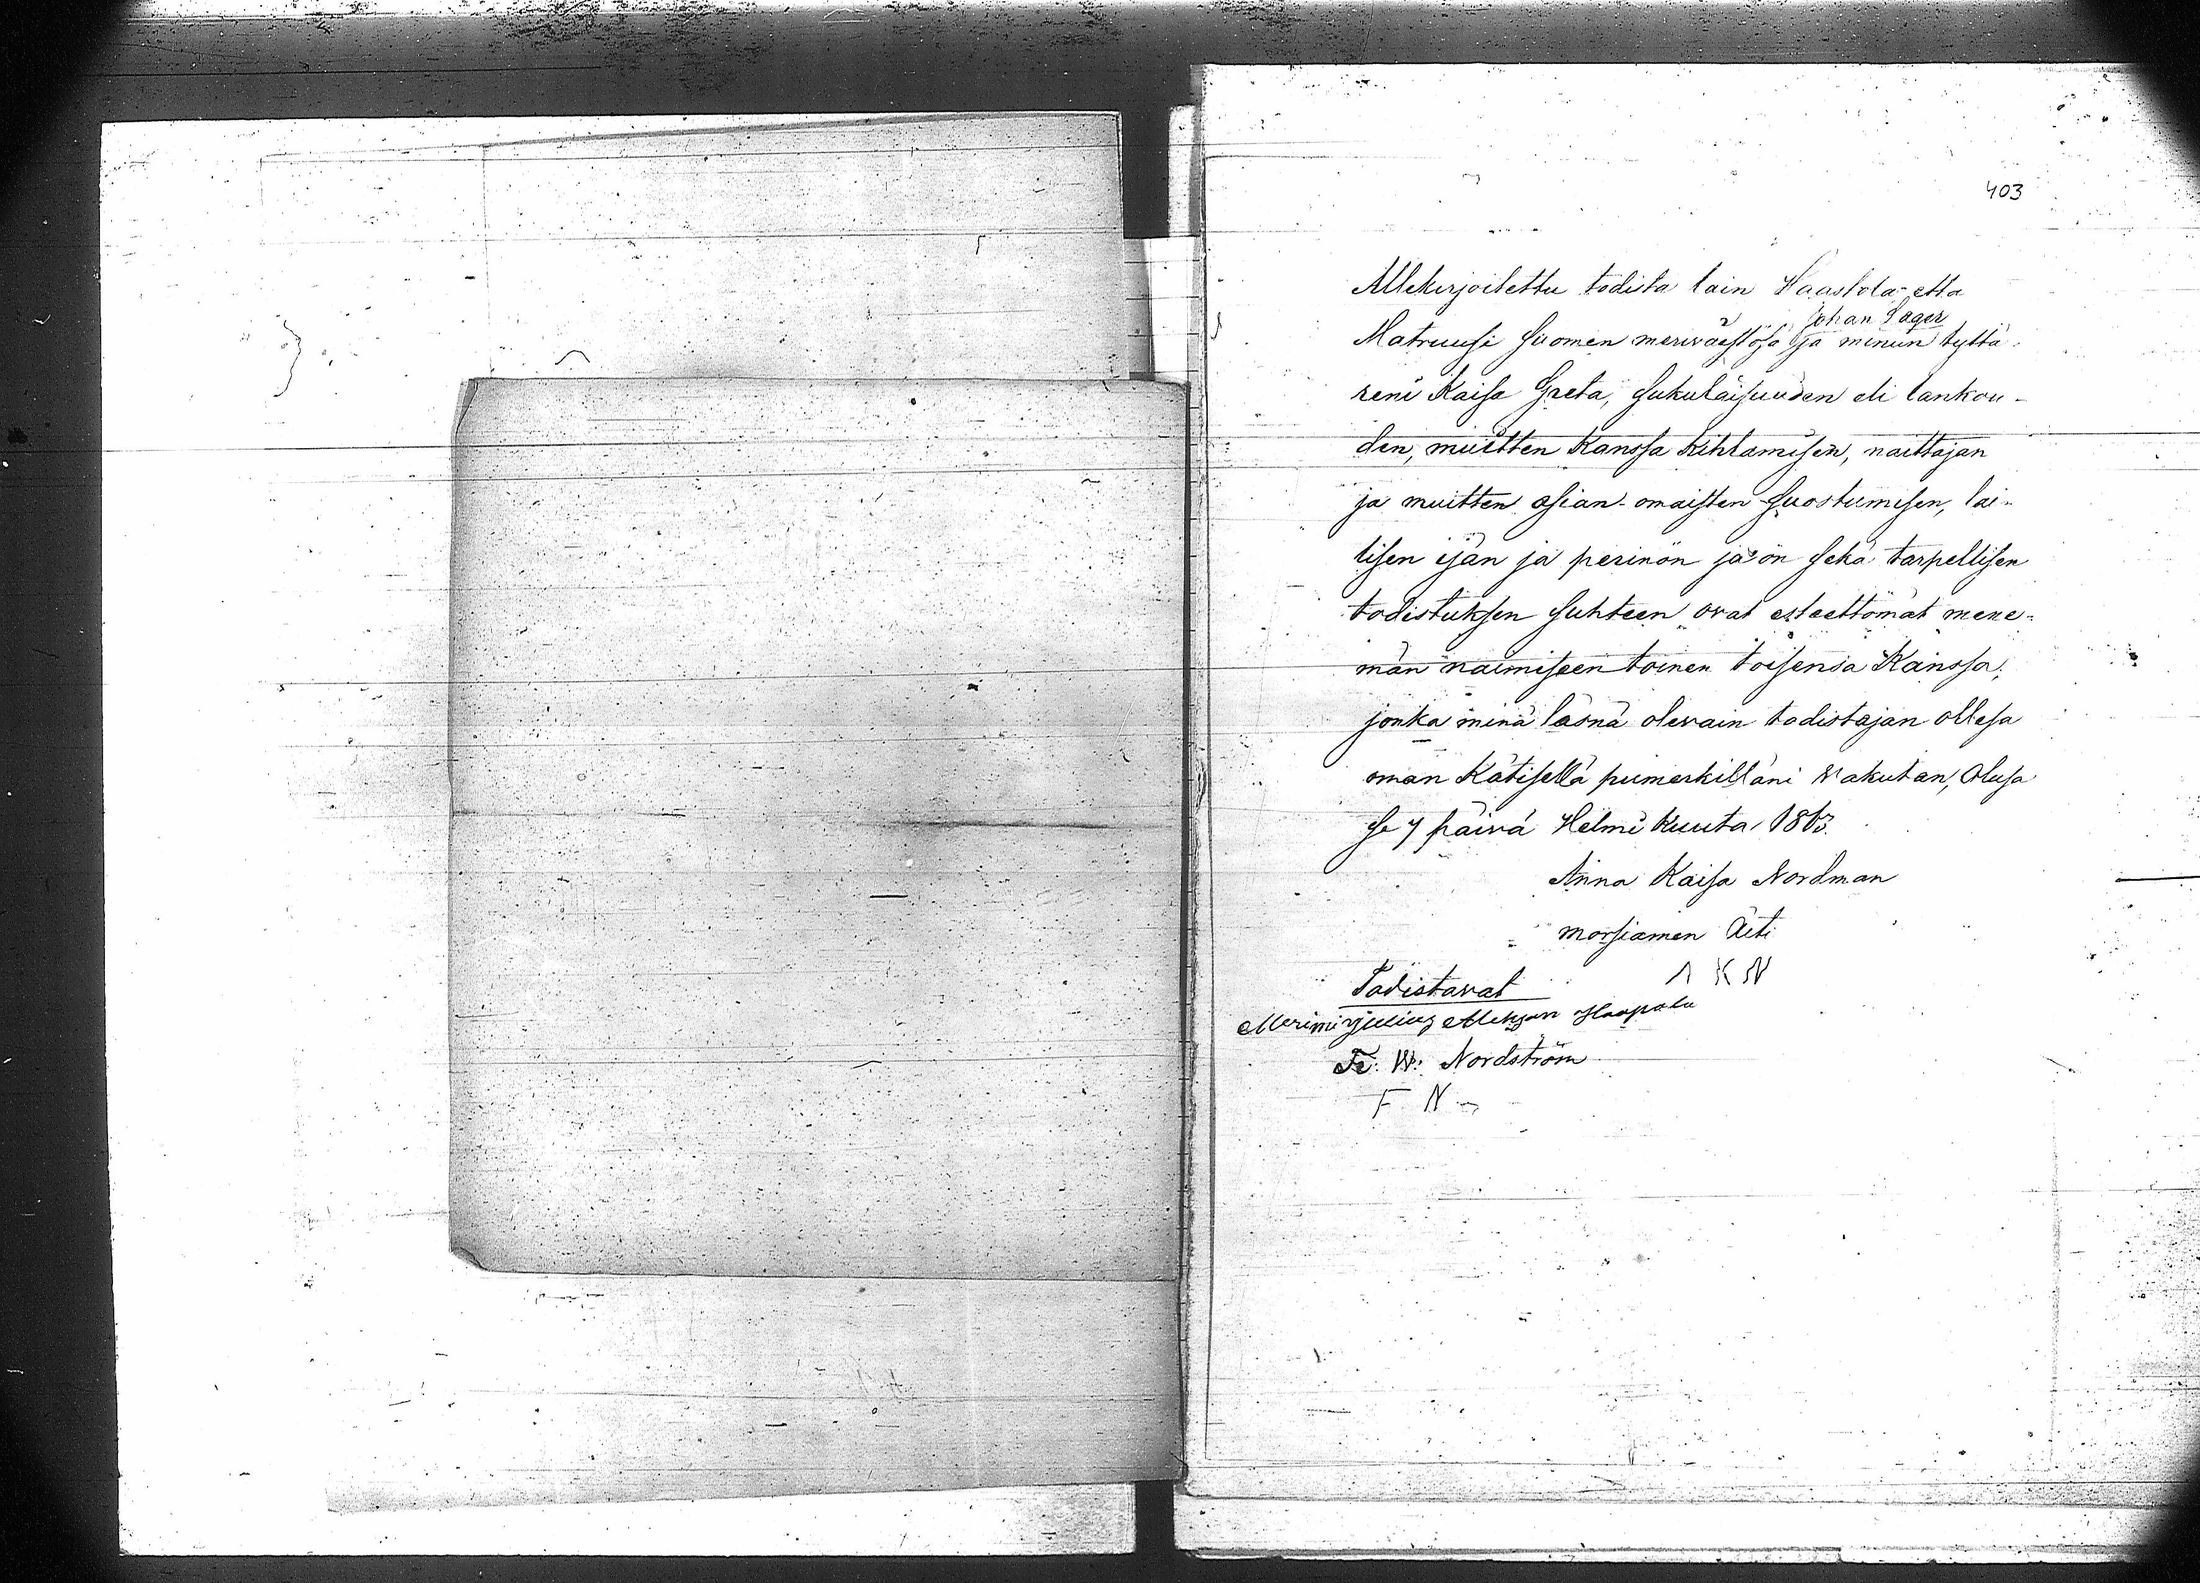 403
Allekirjoitettu todista lain Haastola että
Johan Lager
Matruusi Suomen meriväestösä ja minun tyttä-
reni Kaisa Greta, sukulaisuuden eli lankou-
den, muitten kanssa kihlamisen, naittajan
ja muitten asian-omaisten suostumisen, lai-
lisen ijän ja perinön ja'on sekä tarpellisen
todistuksen suhteen ovat esteettömät mene-
män naimiseen toinen toisensa kanssa,
jonka minä läsnä olevain todistajan ollesa
oman kätisellä puumerkilläni vakutan, Olusa
se 7 päivä Helmi kuuta
Anna Kaisa Nordman
morsiamen Äiti
A K N
Todistavat
Haapala
Fr. W. Nordström
F N